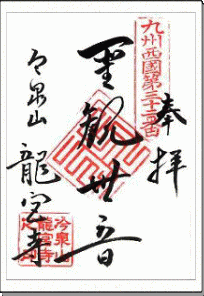 九州西國第三十二番
奉拝
聖観世音
冷泉山
龍宮寺
冷泉山
龍宮寺